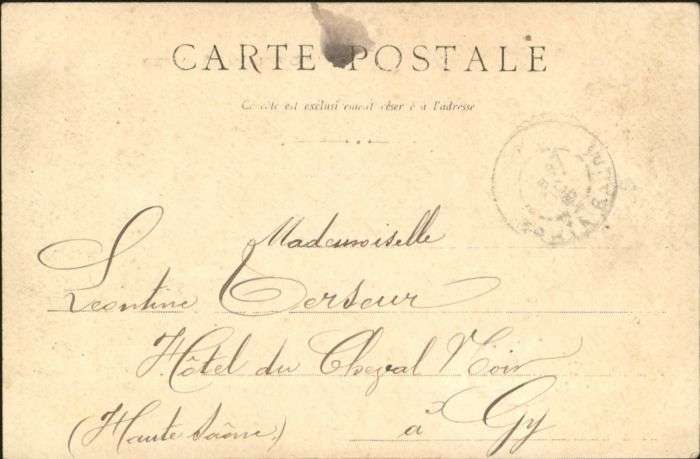 CARTE POSTALE
Ce côté est exclusivement réservé à l'adresse
Mademoiselle
Leontine Terseur
Hôtel du Cheval Noir
à Gy
(Haute Saône)